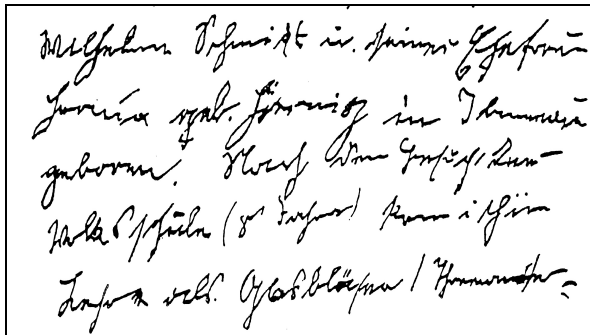 Wilhelm Schmidt u. seiner Ehefrau
geb. Hörnig in Ilmenau
geboren. Nach dem Besuch der
Volksschule (8 Jahre) kam ich in
Lehre als Glasbläser /